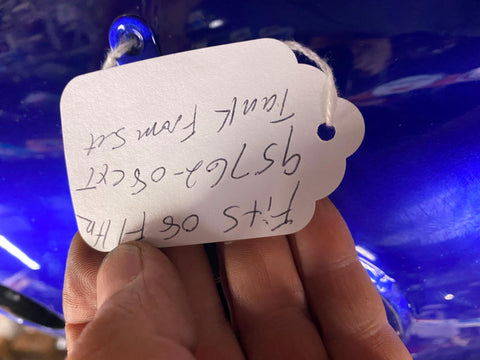 Fits 08
95762-08CXT
Tank From Set